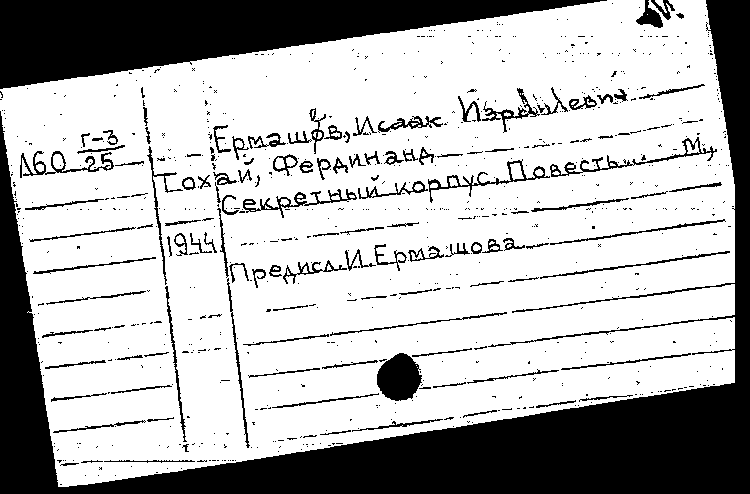 Ермашов, Исаак Израилевич
А60 Г-3/25
Тохай, Фердинанд
Секретный корпус. Повесть... М.,
1944.
Предисл. И. Ермашова